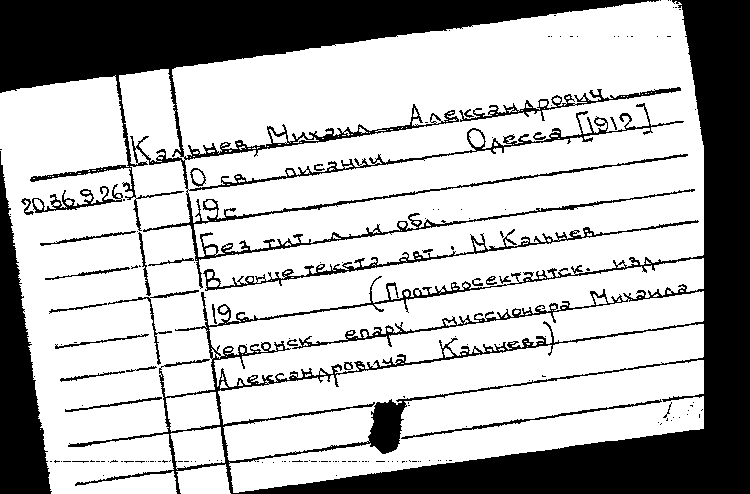 Кальнев, Михаил Александрович.
О св. писании. Одесса, [1912]
20.36.9.263
19с.
Без тит. л. и обл.
В конце текста авт: М. Кальнев.
19с. (Противосектантск. изд.
херсонск. епарх миссионера Михаила
Александровича Кальнева)